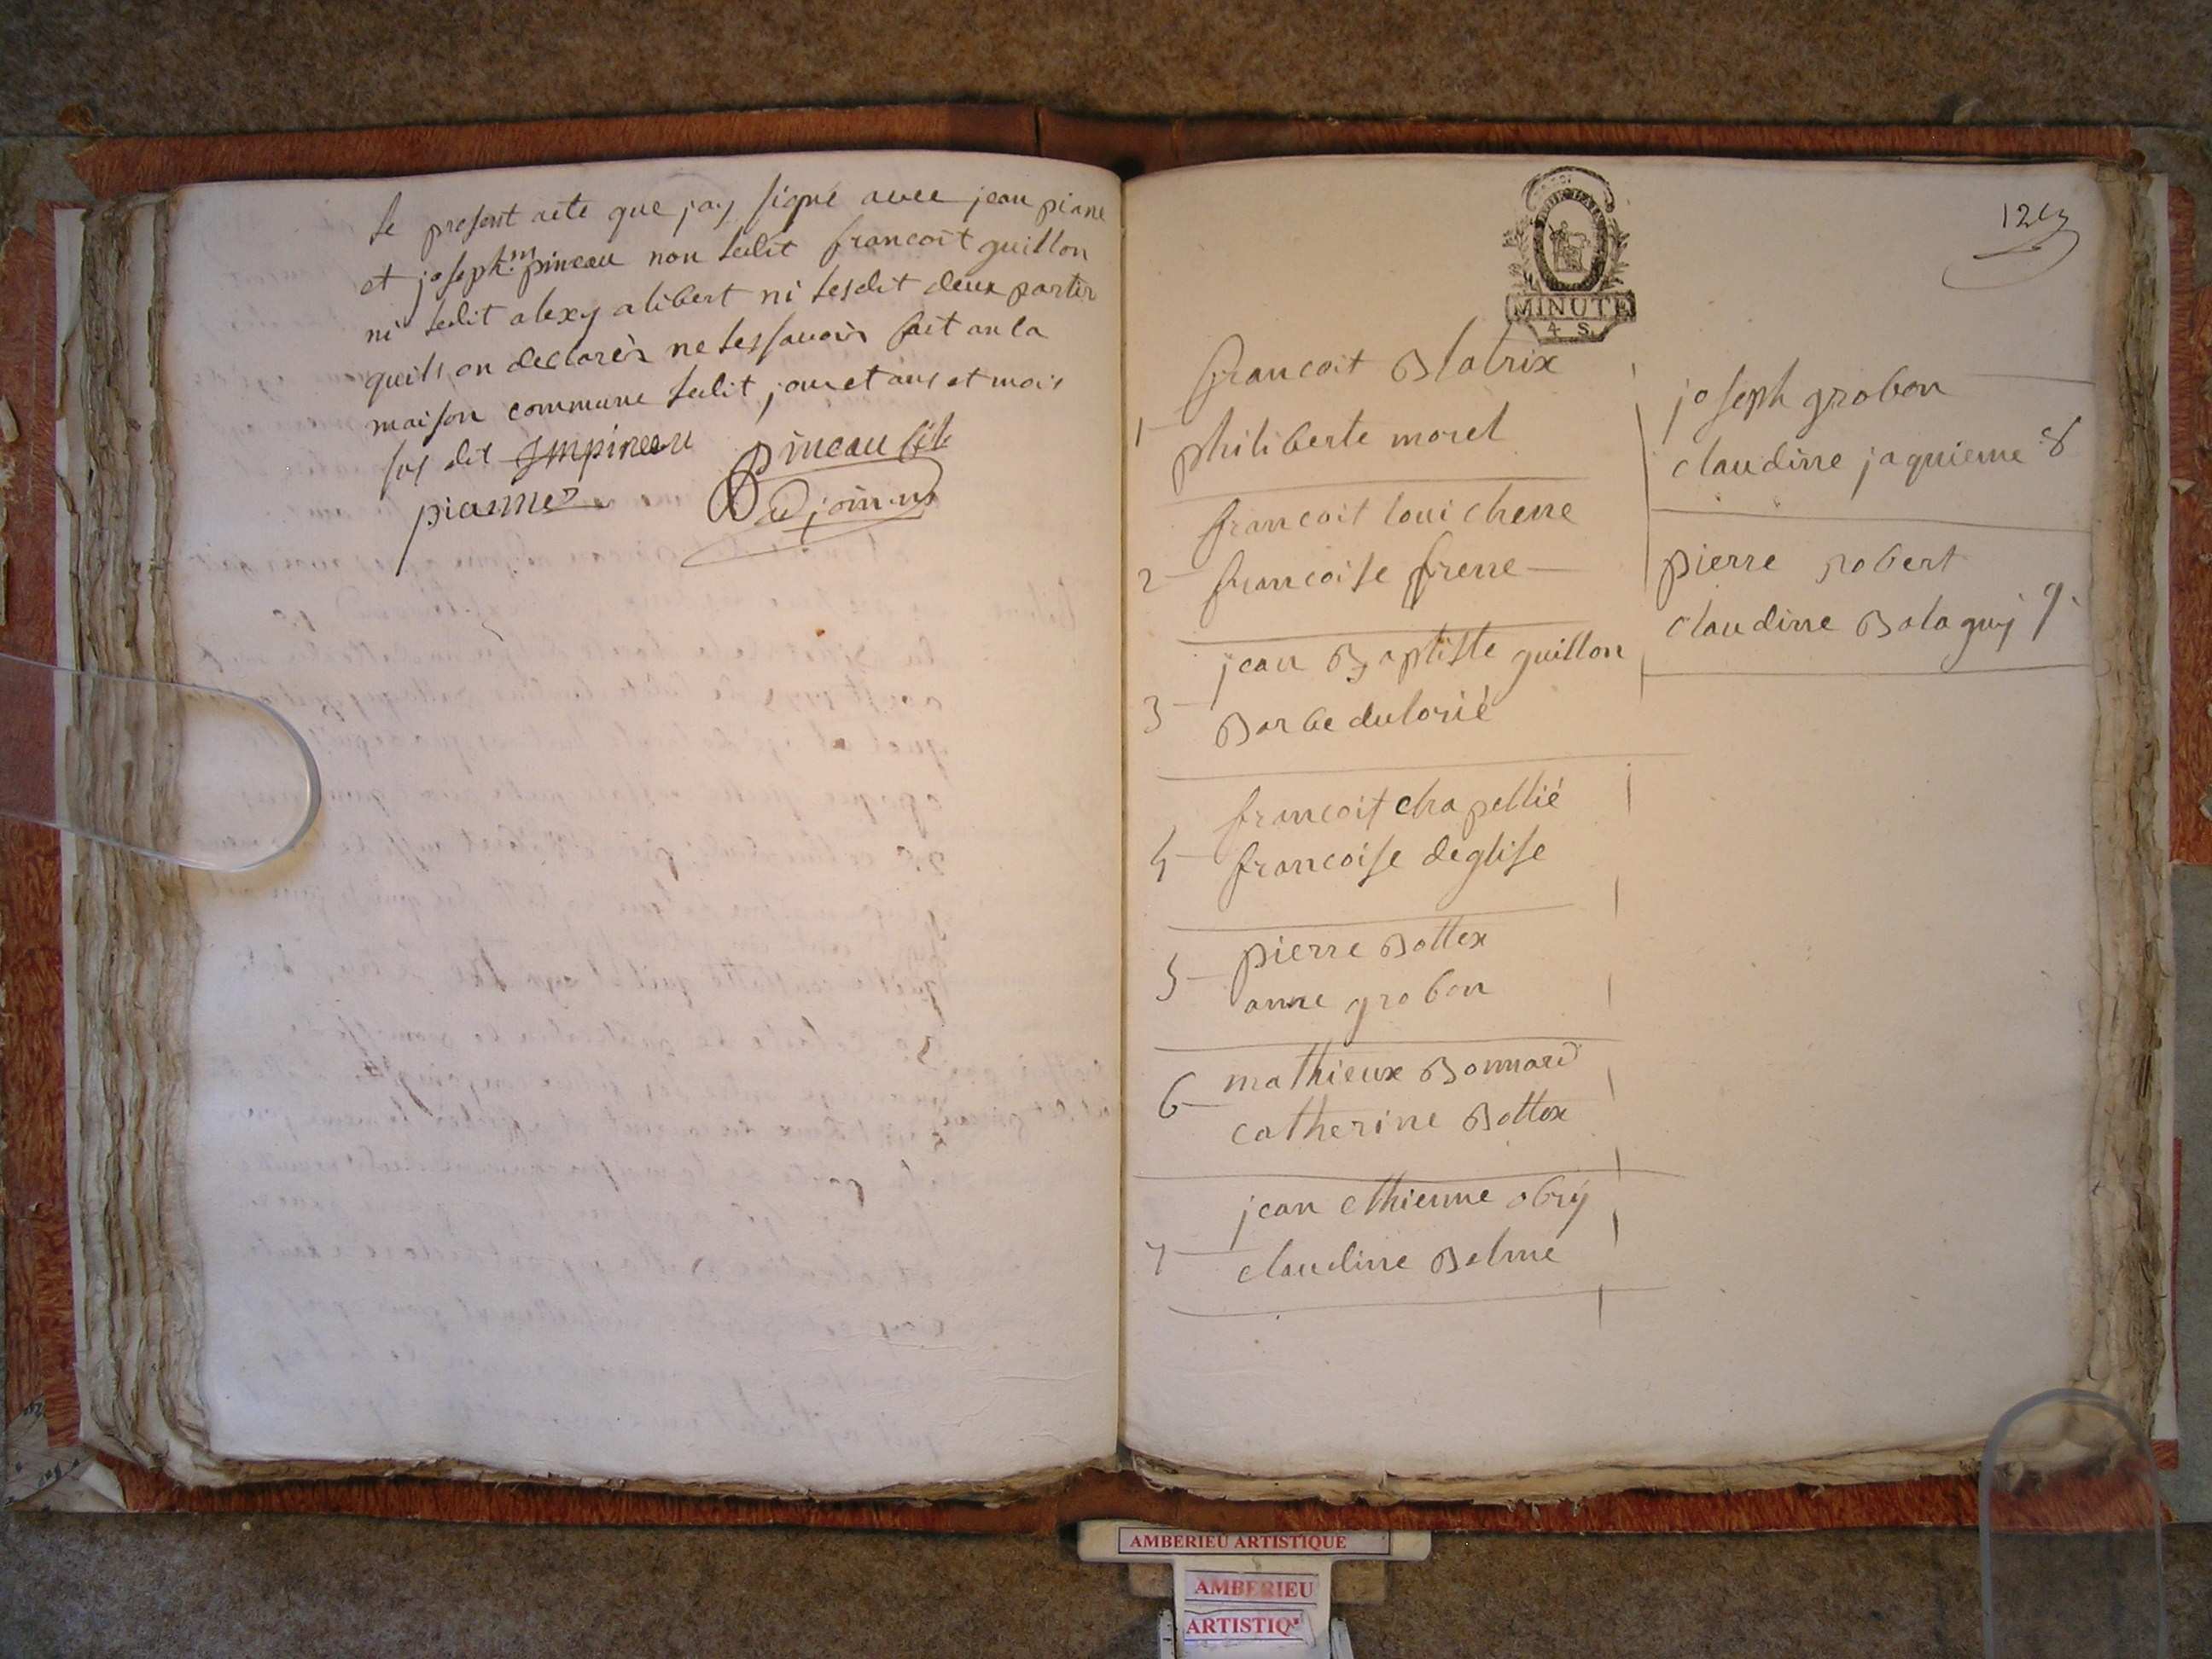 le present acte que jay signé avec jean piane
et joseph m pineau non ledit francoit guillon
ni ledit alexy alibert ni lesdit deux partir
quils on declarér ne les savoir fait an la
maison commune ledit jour et ans et mois
sus dit Jmpineau pineau
pianne
MINUTE
4 S.
francoit Blatrix
1 philiberte morel
francoit loui chene
2 francoise frene
jean Baptiste guillon
3 Barbe dulorié
francoit chapellié
4 francoise deglise
pierre Bottex
5 anne grobon
mathieux Bonnard
6 catherine Bottex
jean ethienne obry
7 claudine Belme
joseph grobon
claudine jaquieme 8
pierre robert
claudine Balaguy 9
AMBERIEU ARTISTIQUE
AMBERIEU
ARTISTIQ